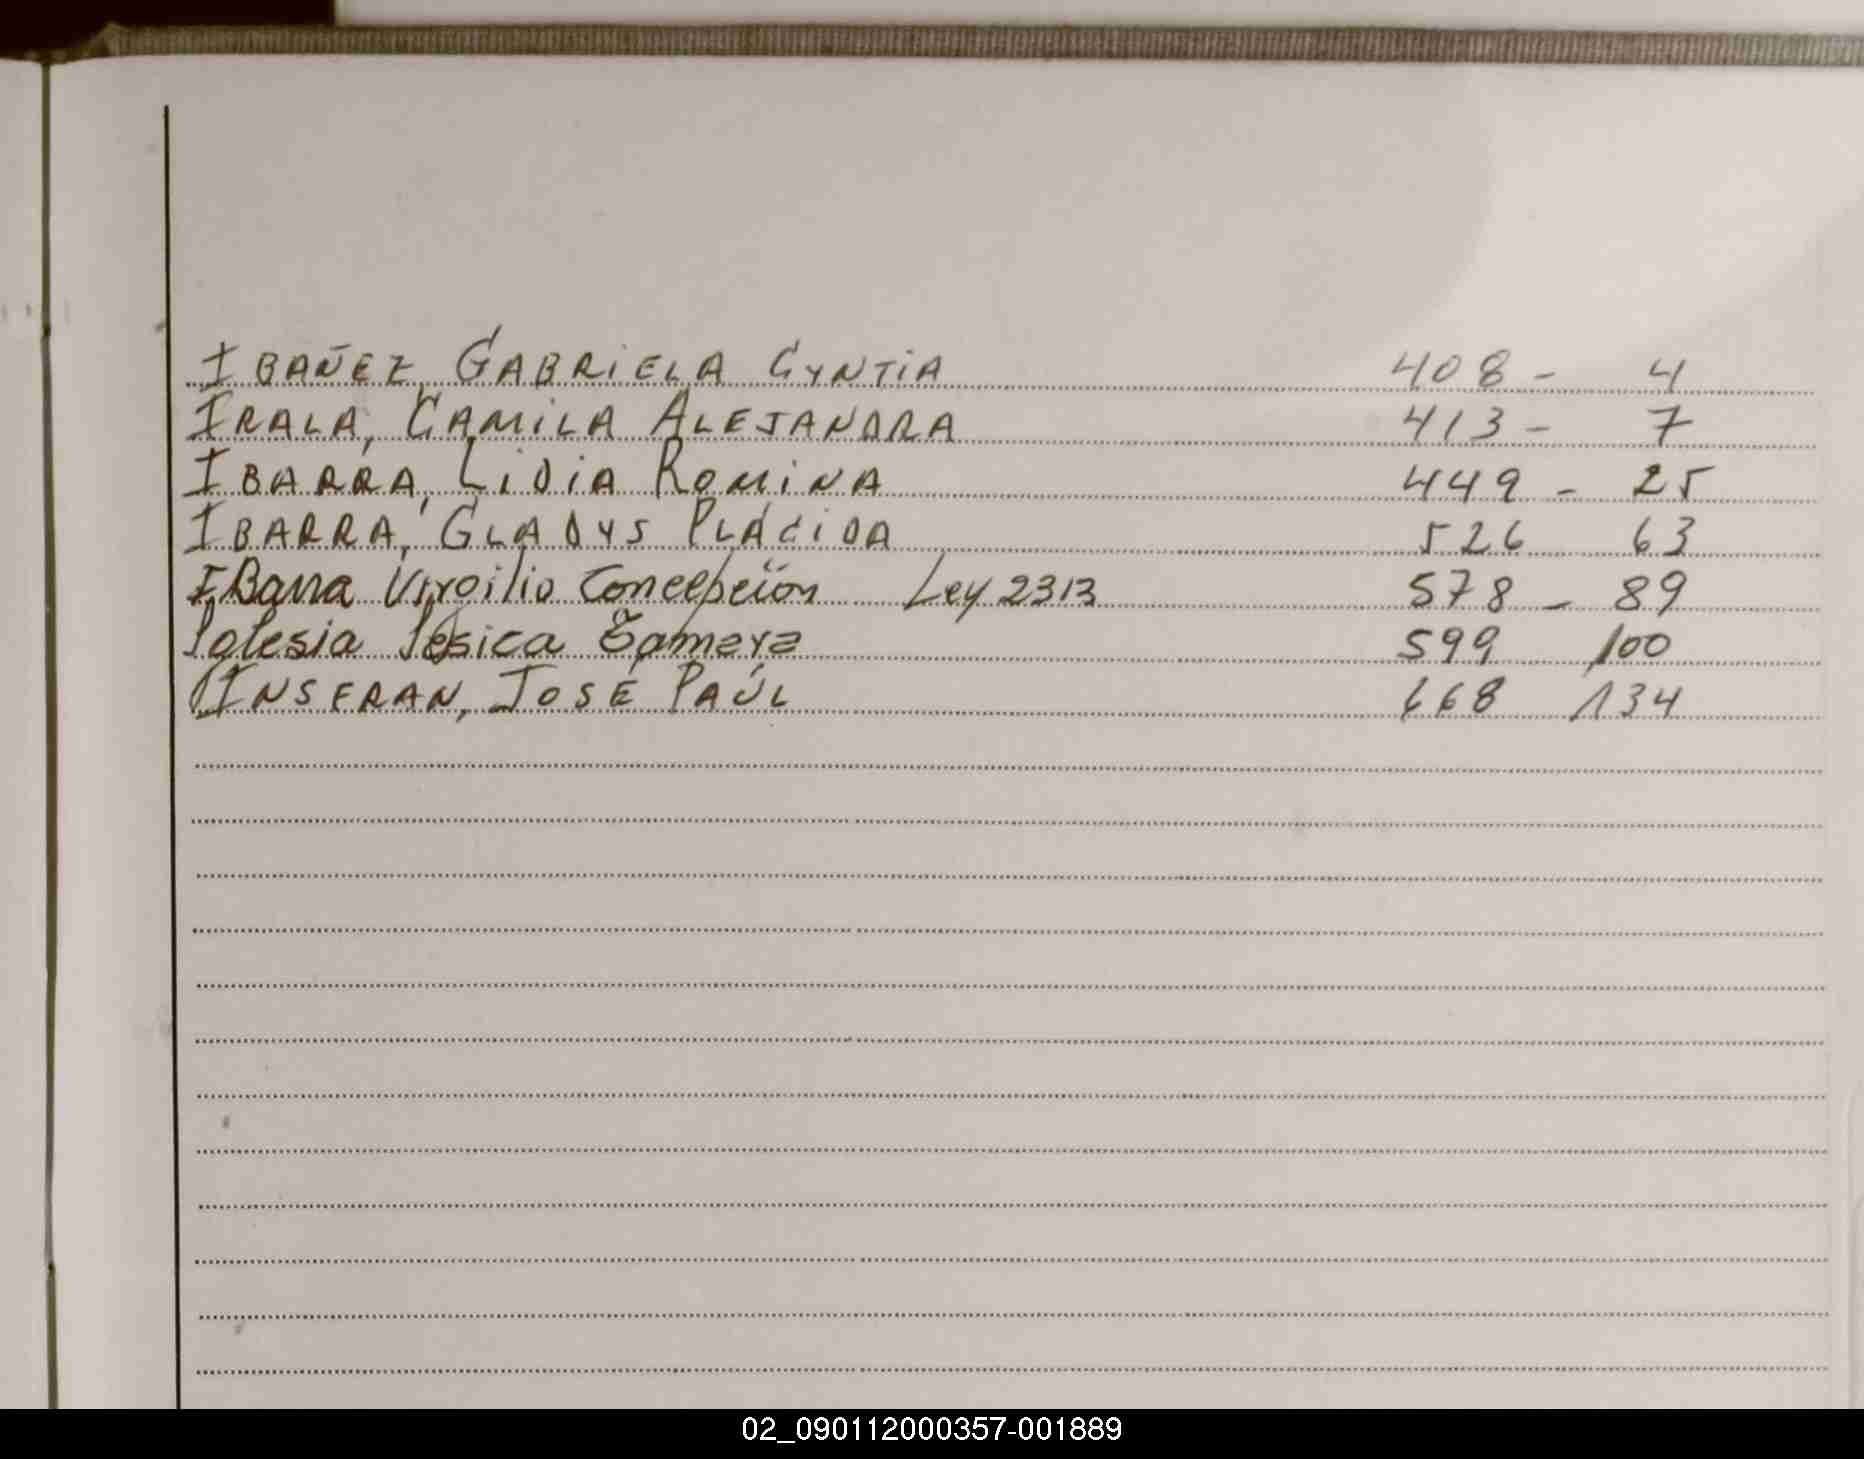 IBAÑEZ, GABRIELA CYNTIA 408 - 4
IRALA, CAMILA ALEJANDRA 413 - 7
IBARRA, LIDIA ROMINA 449 - 25
IBARRA, GLADYS PLÁCIDA 526 63
IBarra Virgilio Concepción Ley 2313 578 - 89
Iglesia Jésica 599 100
INSFRAN, JOSÉ PAÚL 668 134
02_090112000357-001889